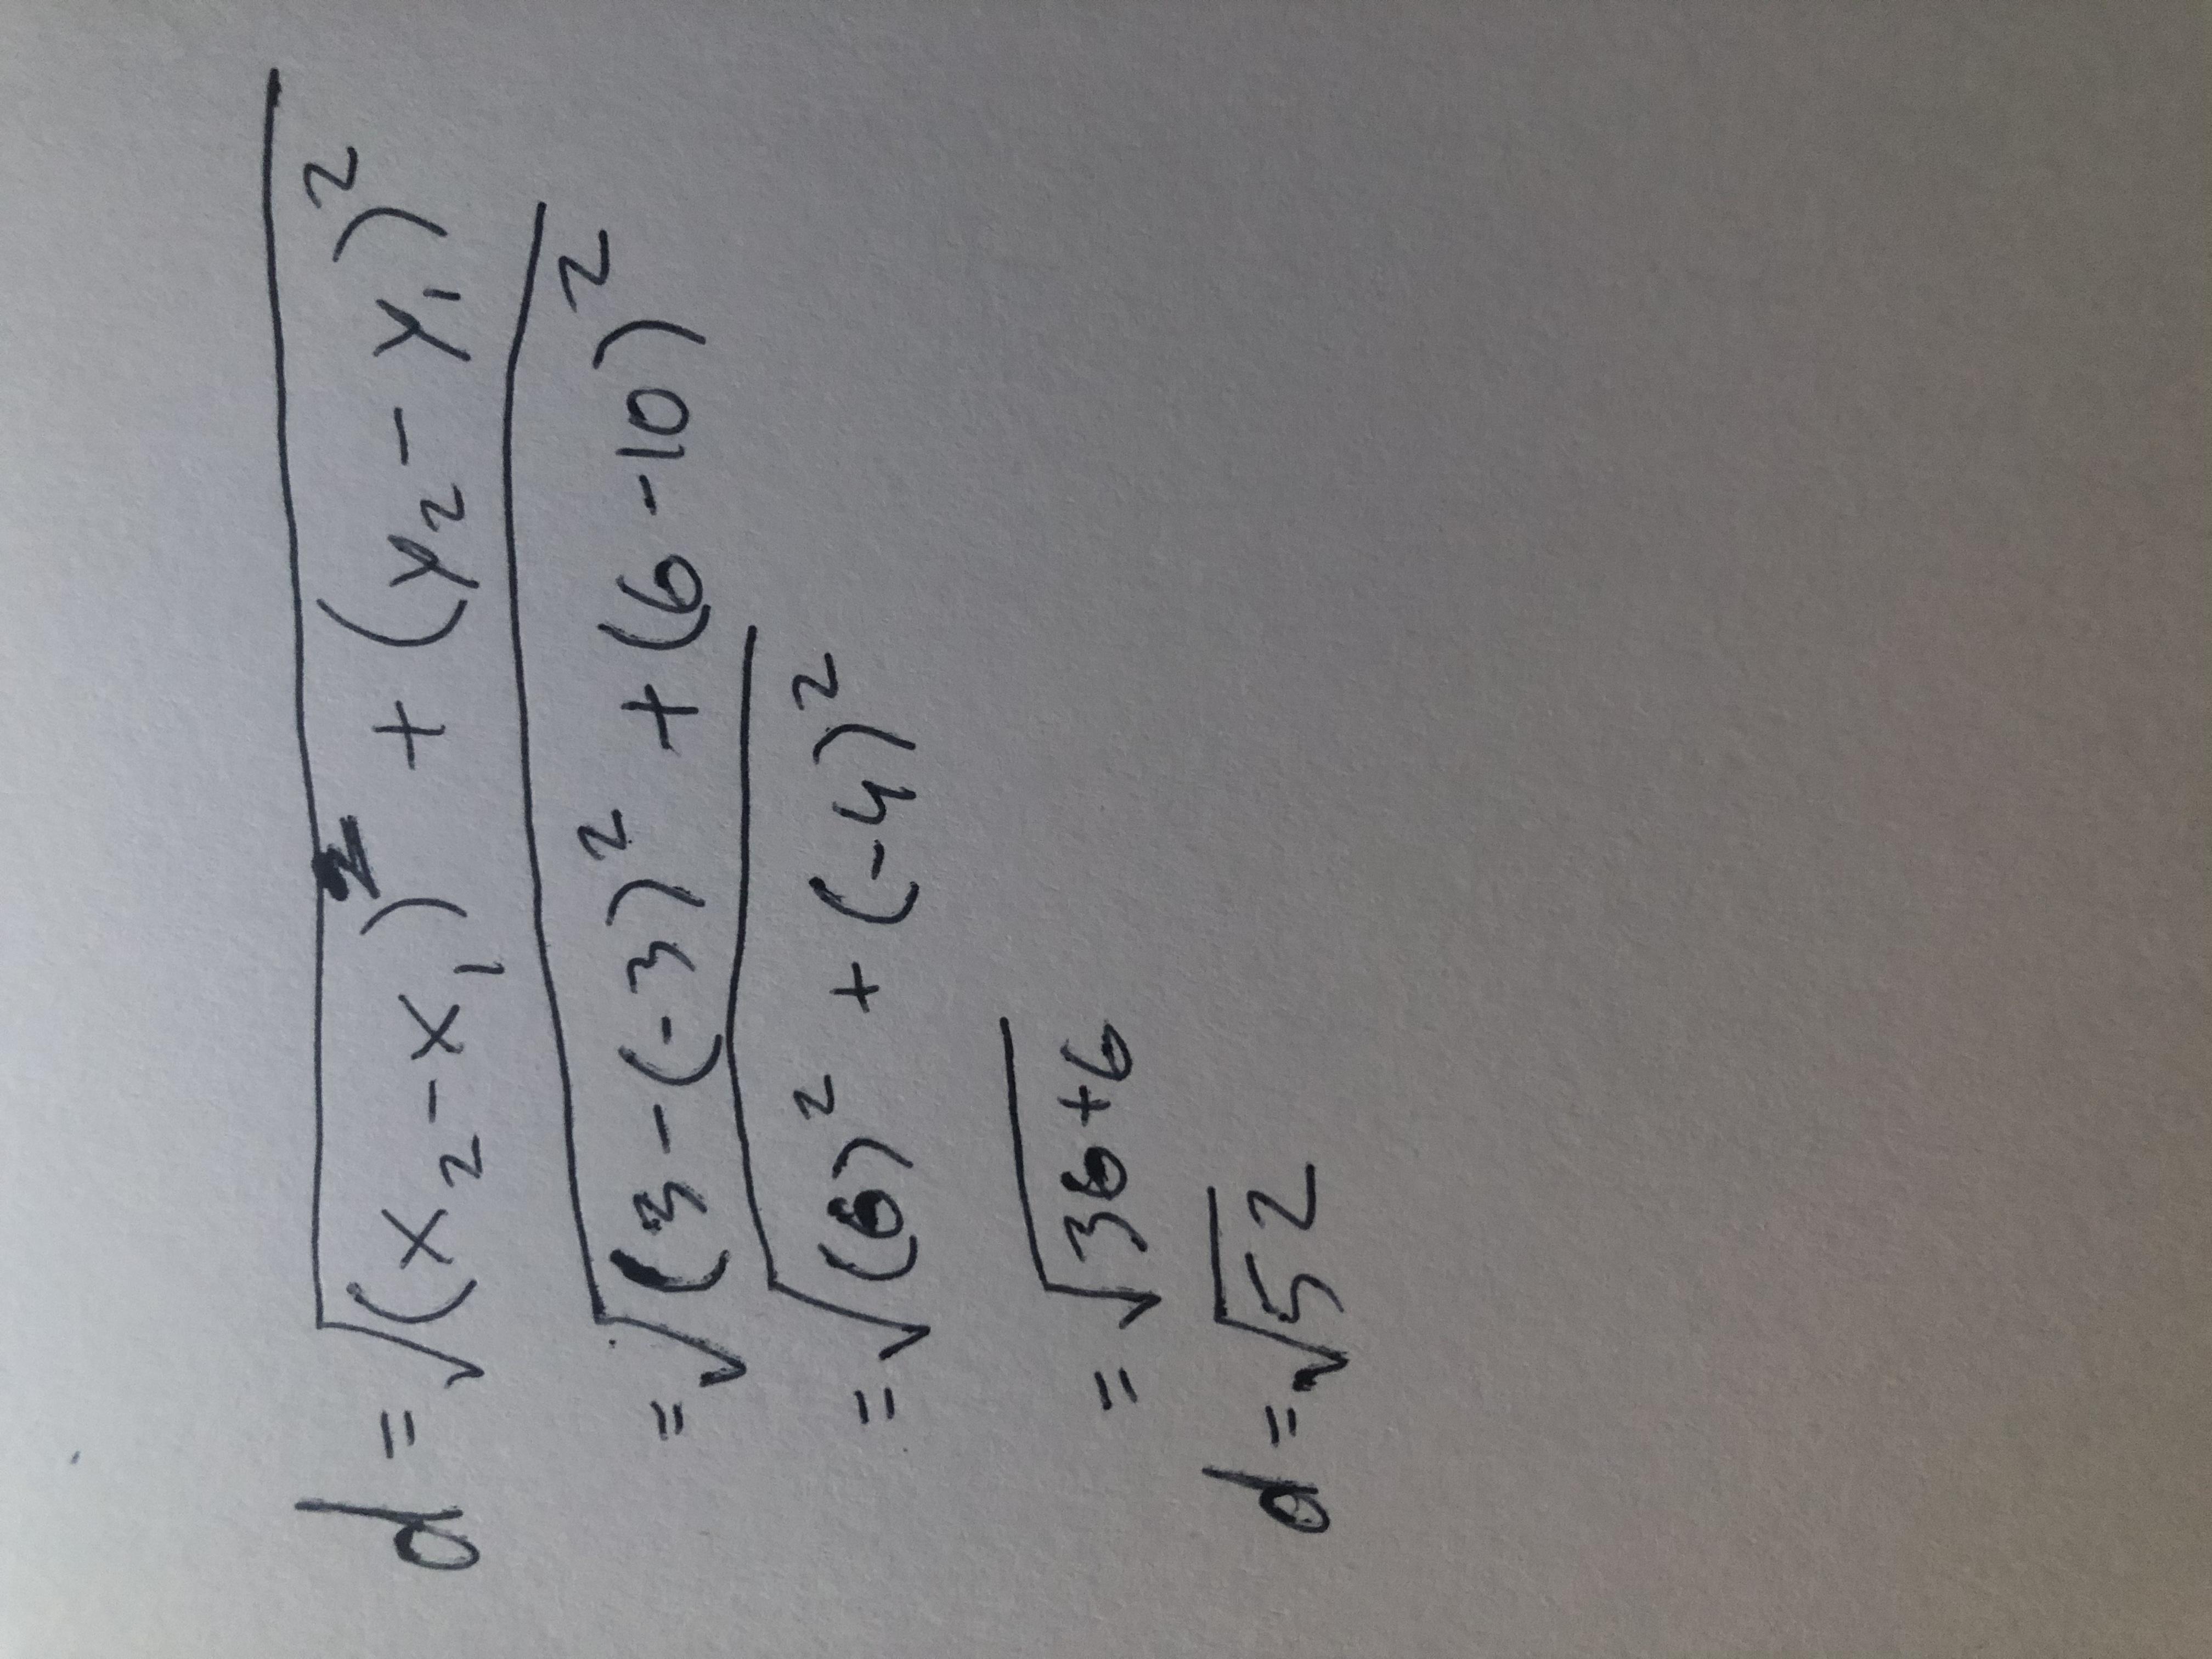 d = √(x₂ - x₁)² + (y₂ - y₁)²
= √(3 - (-3)² + (6 - 10)²
= √(6)² + (-4)²
= √36+6
d = √52